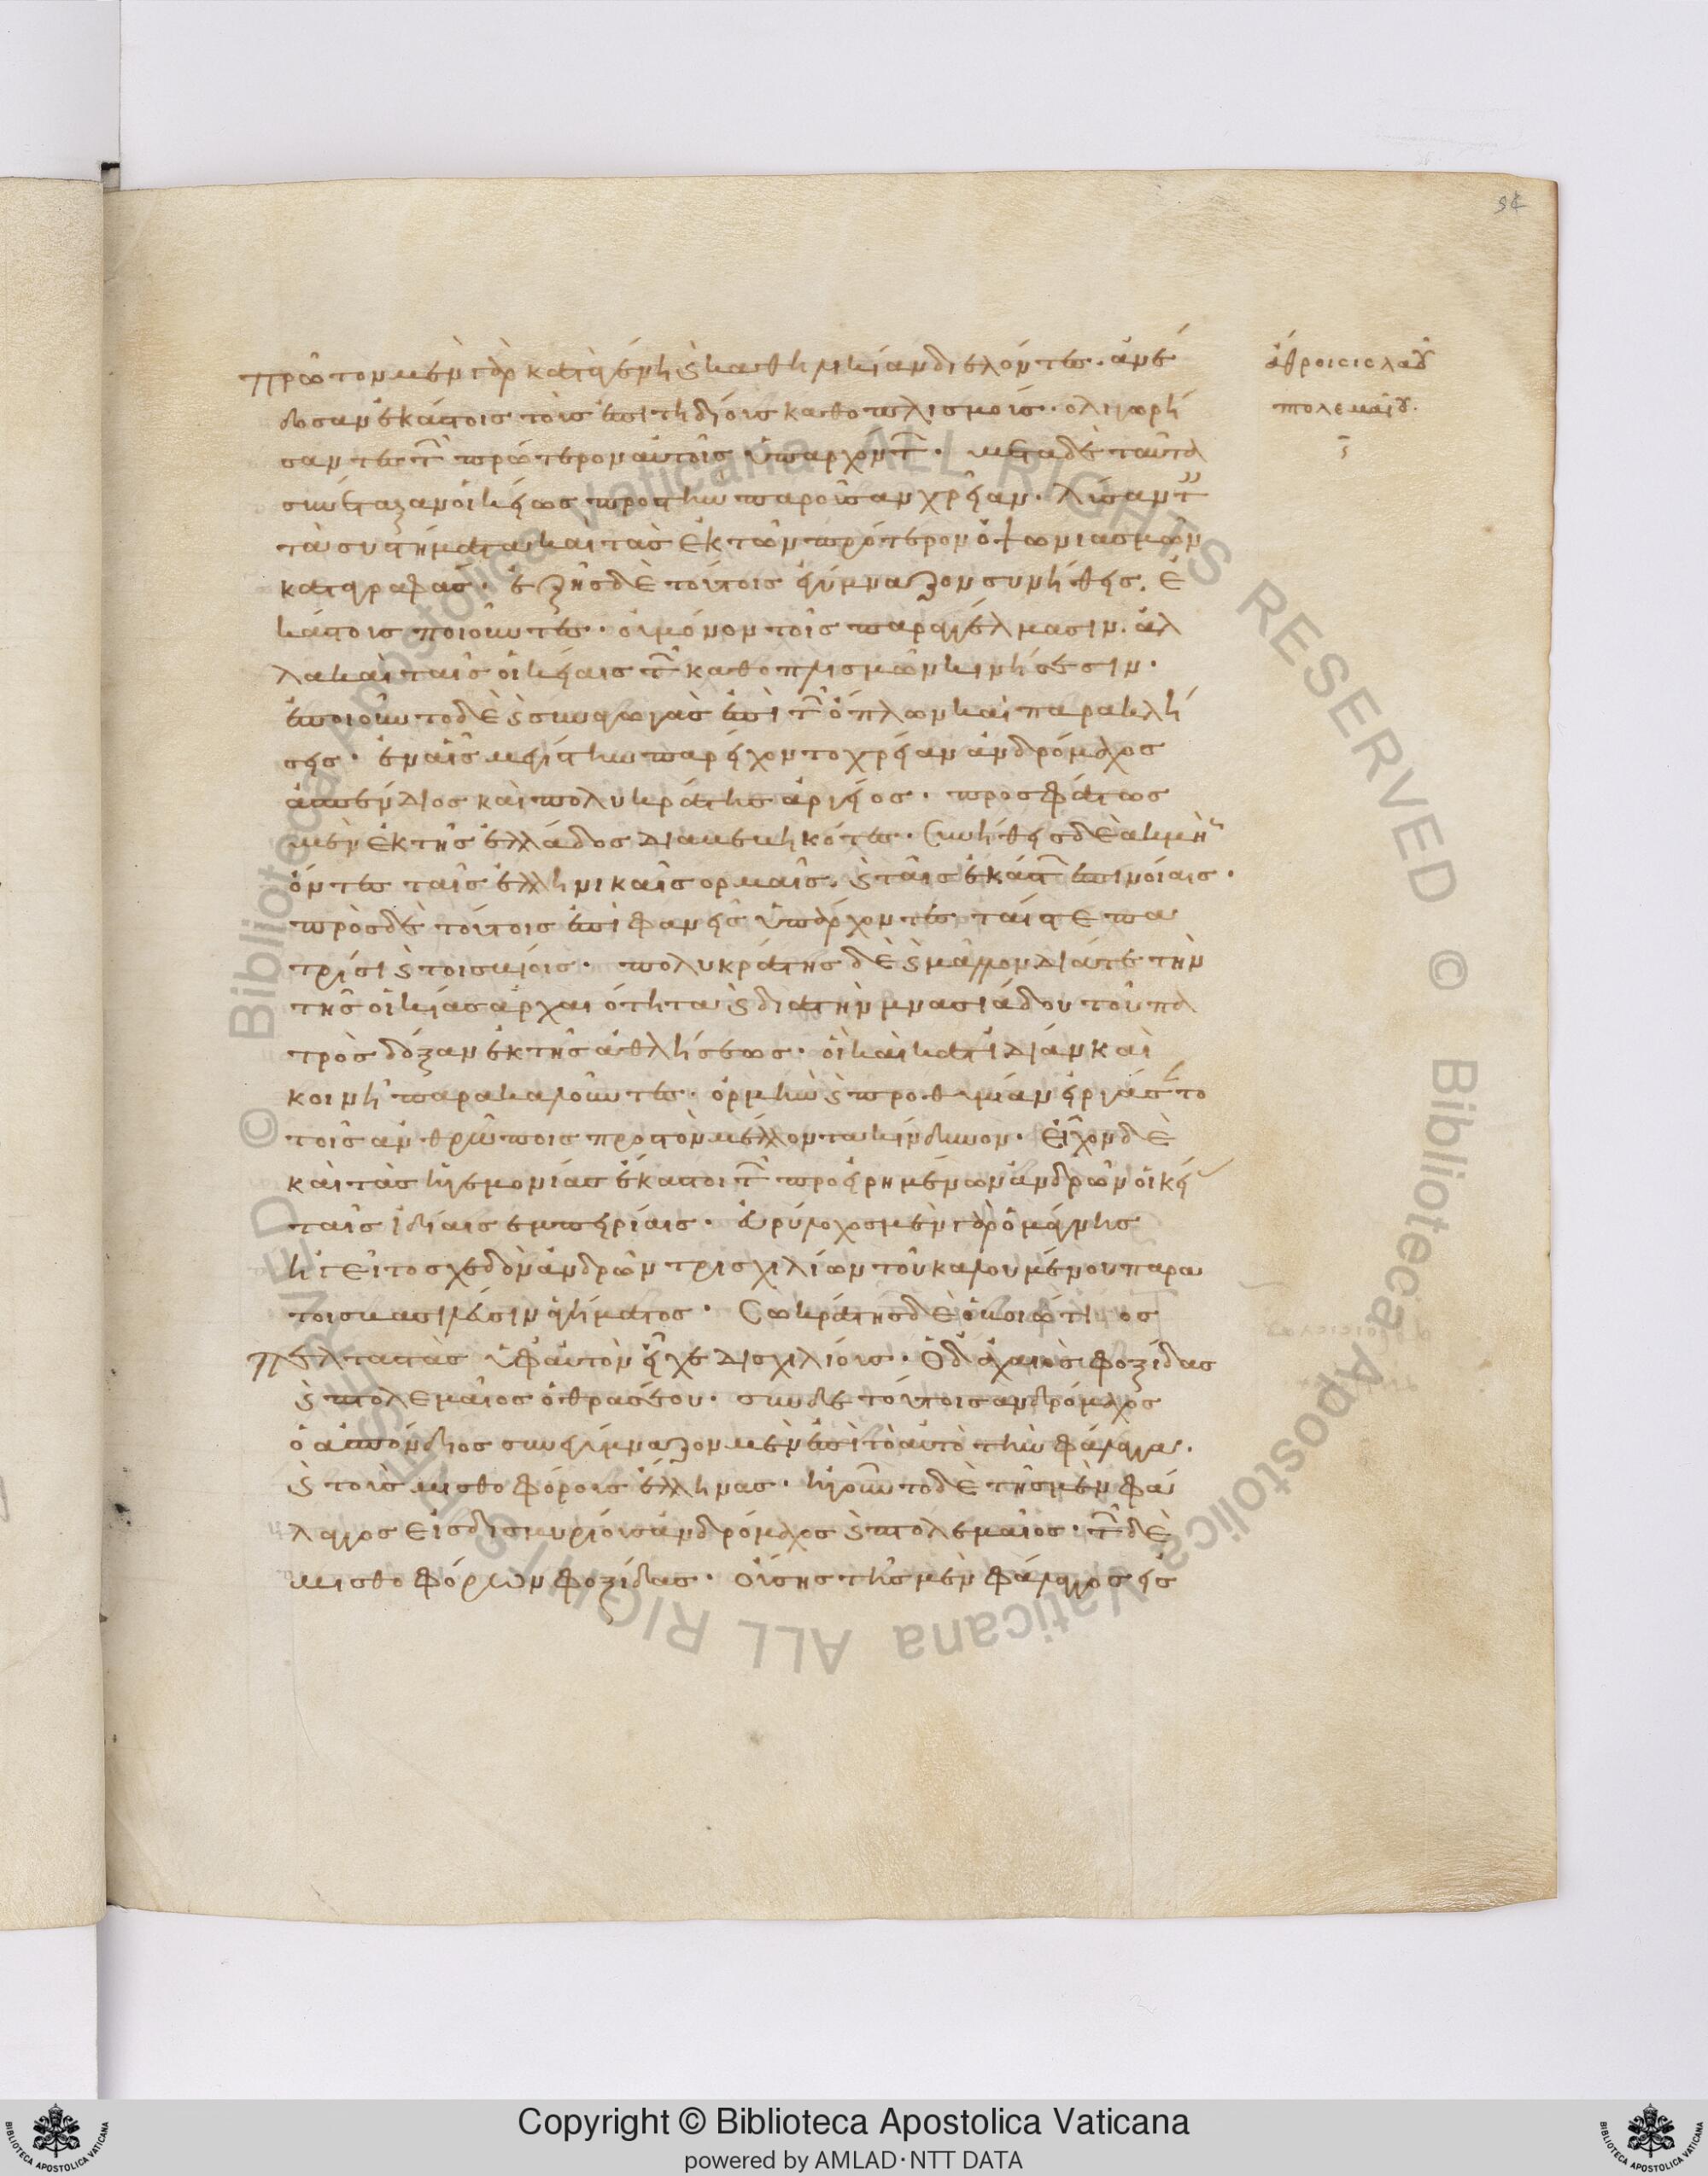 πρῶτον μὲν γὰρ κατὰ γένη καὶ καθ' ἡλικίαν διελόντες· ἀνέ
δωσαν ἑκάστοις τοὺς ἐπιτηδίους καθοπλισμούς· ὀλιγωρή
σαντες τῶν πρώτερον αὐτοῖς ὑπαρχόντων· μετὰ δὲ ταῦτα
συνέταξαν οἰκείως πρὸς τὴν παροῦσαν χρείαν· λύσαντες
τὰ συστήματα καὶ τὰς ἐκ τῶν πρότερον ὀψωνιασμῶν
καταγραφάς· ἑξῆς δὲ τούτοις ἐγύμναζον συνήθεις, ἑ
κάστους ποιοῦντες· οὐ μόνον τοῖς παραγγέλμασιν· ἀλ
λὰ καὶ ταῖς οἰκείαις τῶν καθοπλισμῶν κινήσεσιν·
ἐποιοῦντο δὲ καὶ συναγωγὰς ἐπὶ τῶν ὅπλων καὶ παρακλή
σεις· ἐν αἷς μεγίστην παρείχοντο χρείαν ἀνδρόμαχος
ἀσπένδιος καὶ πολυκράτης ἀργεῖος· προσφάτως
μὲν ἐκ τῆς ἑλλάδος διαβεβηκότες· συνήθεις δὲ ἀκμὴν
ὄντες ταῖς ἑλληνικαῖς ὁρμαῖς· καὶ ταῖς ἑκάστων ἐπινοίαις·
πρὸς δὲ τούτοις ἐπιφανεῖς ὑπάρχοντες ταῖς τε πα
τρίσι καὶ τοῖς βίοις· πολυκράτης δὲ καὶ μᾶλλον διά τε τὴν
τῆς οἰκίας ἀρχαιότητα καὶ διὰ τὴν μνασιάδου τοῦ πα
τρὸς δόξαν ἐκ τῆς ἀθλήσεως· οἳ καὶ κατ' ἰδίαν καὶ
κοινῇ παρακαλοῦντες· ὁρμὴν καὶ προθυμίαν εἰργάσαντο
τοῖς ἀνθρώποις πρὸς τὸν μέλλοντα κίνδυνον· εἶχον δὲ
καὶ τὰς ἡγεμονίας ἕκαστοι τῶν προειρημένων ἀνδρῶν οἰκεί
ταῖς ἰδίαις ἐμπειρίαις· εὐρύλοχος μὲν γὰρ ὁ μάγνης
ἡγεῖτο σχεδὸν ἀνδρῶν τρισχιλίων τοῦ καλουμένου παρὰ
τοῖς βασιλεῦσιν ἀγήματος· Σωκράτης δὲ ὁ βοιώτιος
πελταστὰς ὑφ' αὑτὸν εἶχε δισχιλίους· ὁ δ' ἀχαιὸς φοξίδας
καὶ πτολεμαῖος ὁ θρασέου· σὺν δὲ τούτοις ἀνδρόμαχος
ὁ ἀσπένδιος συνεγύμναζον μὲν ἐπὶ τὸ αὐτὸ τὴν φάλαγγα·
καὶ τοὺς μισθοφόρους ἕλληνας· ἡγοῦντο δὲ τῆς μὲν φά
λαγγος εἰς δισμυρίους ἀνδρόμαχος καὶ πτολεμαῖος· τῶν δὲ
μισθοφόρων φοξίδας· οὔσης τῆς μὲν φάλαγγος εἰς
ἄθροισις λαοῦ
πτολεμαίου·